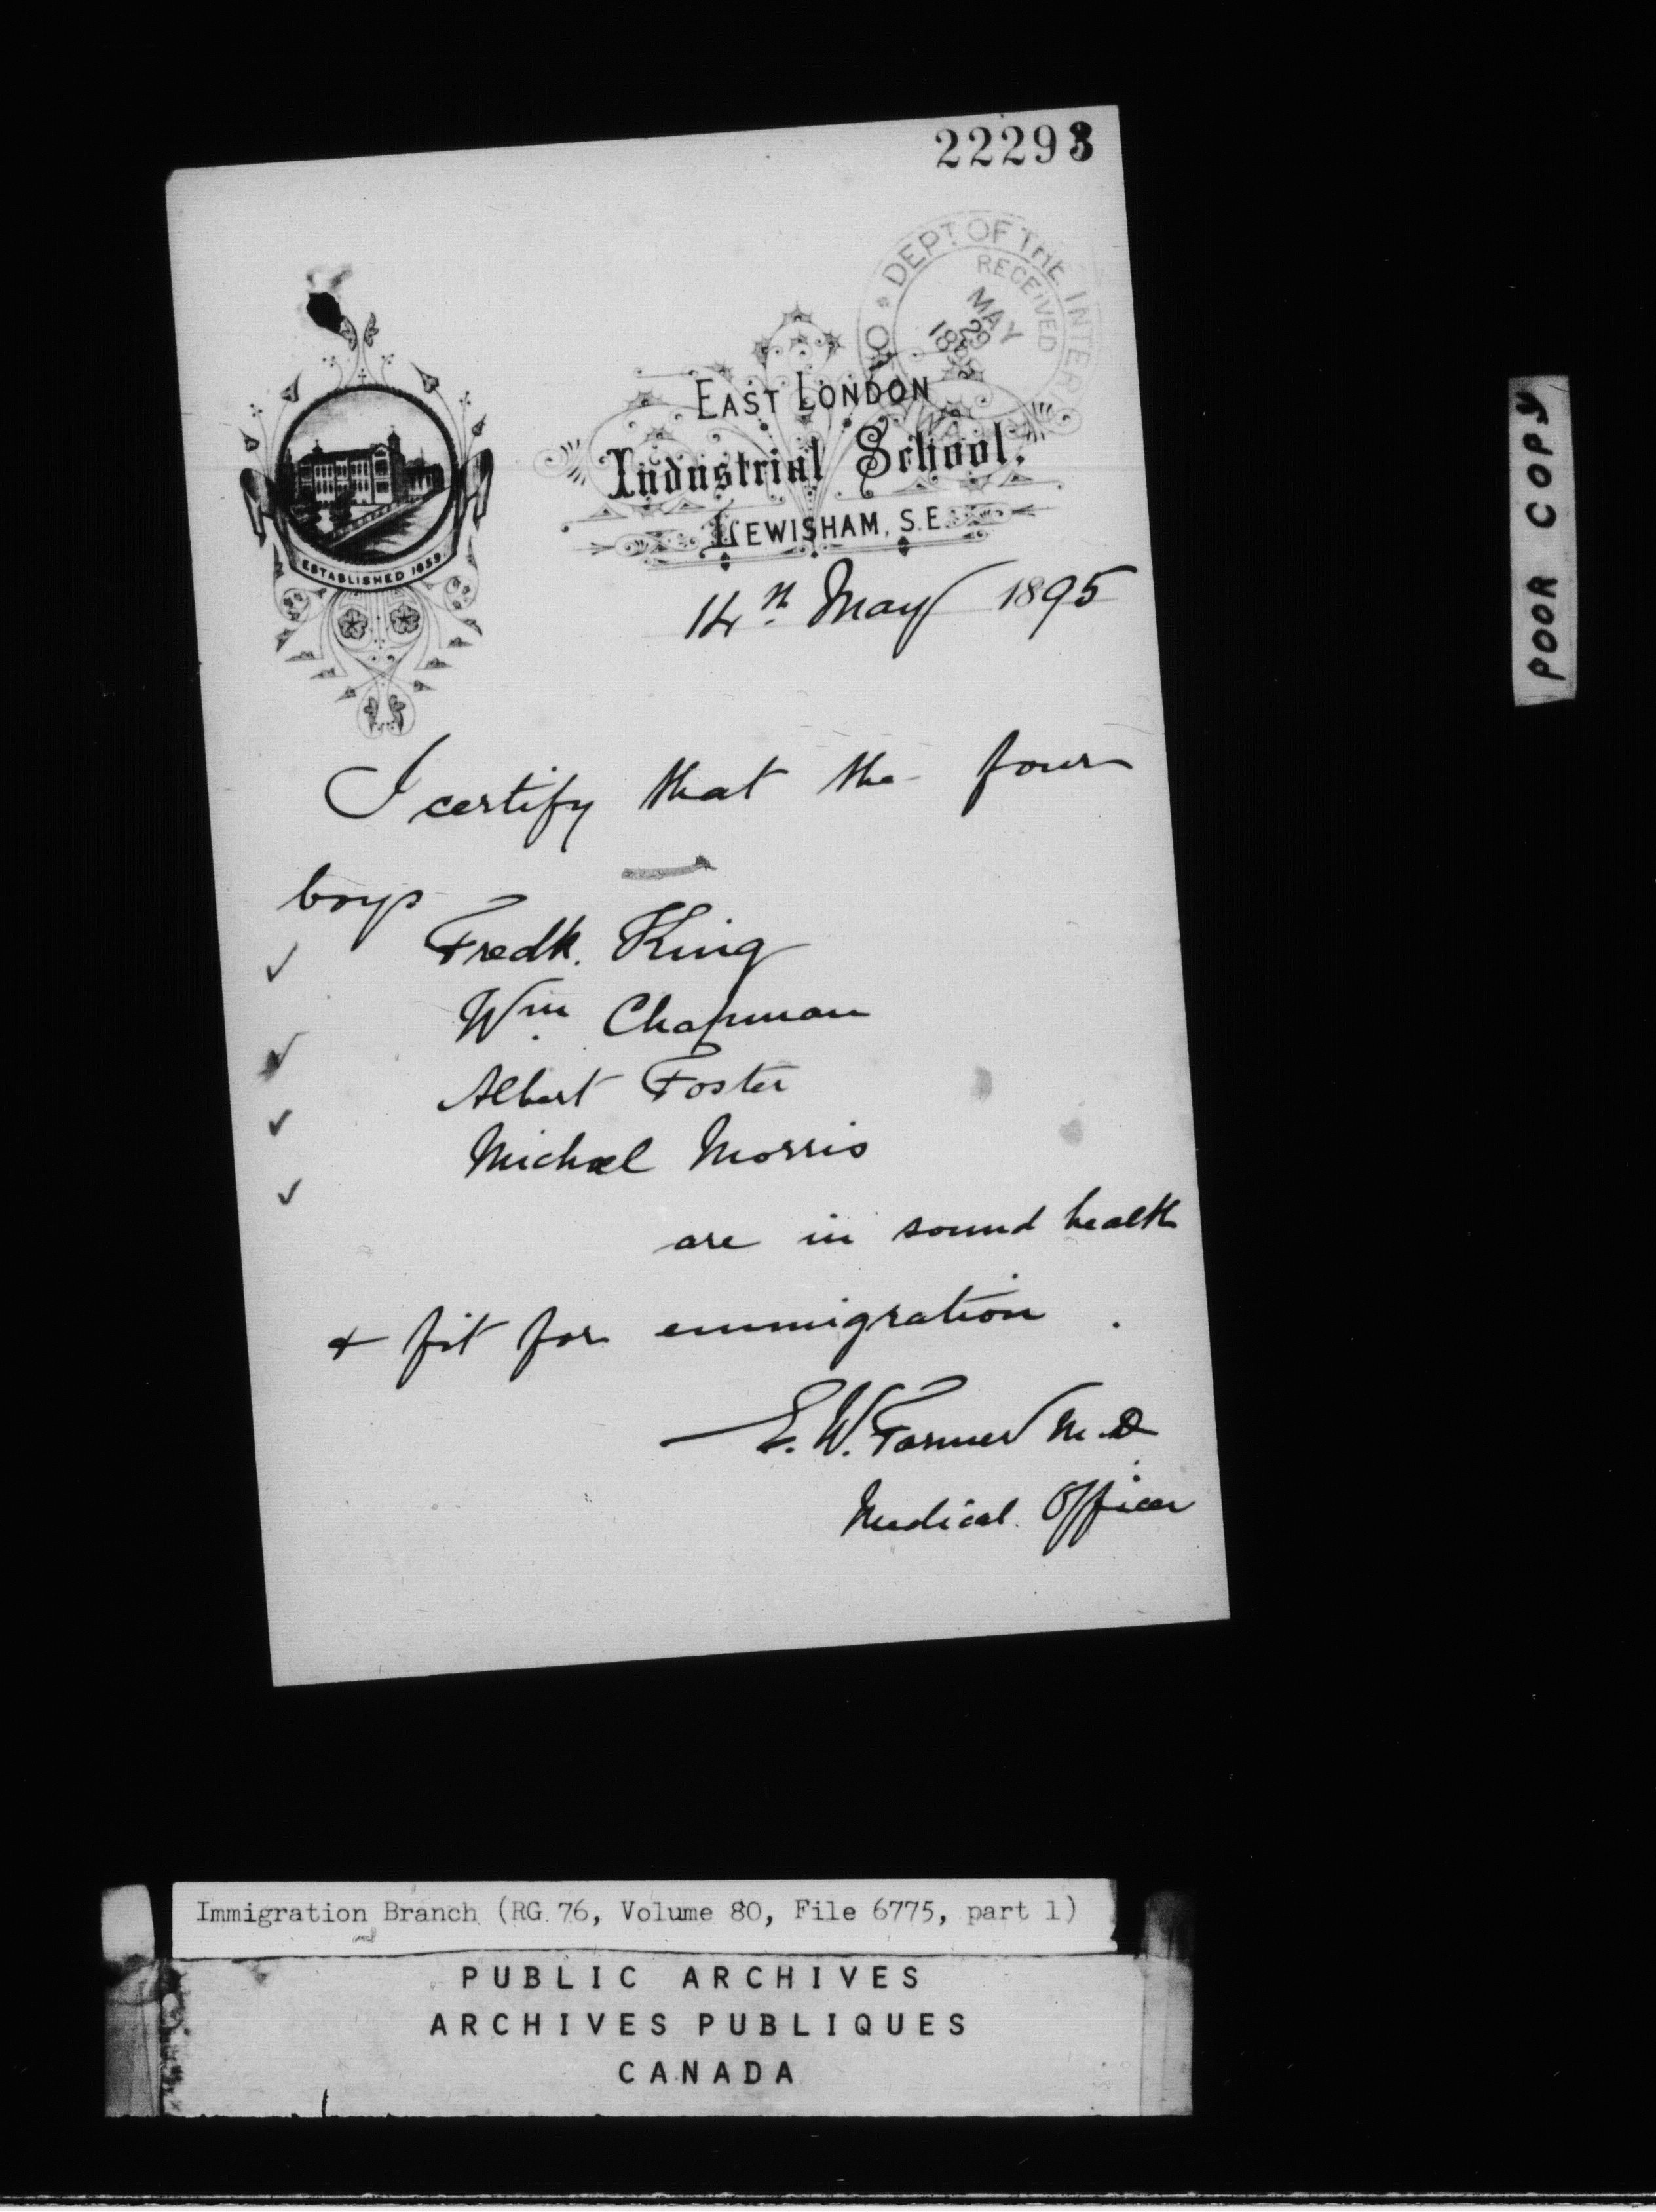 22293
DEPT. OF THE INTERIOR
RECEIVED
MAY
29
1895
OTTAWA
ESTABLISHED 1859.
EAST LONDON
Industrial School,
LEWISHAM, S.E.
14th May 1895
I certify that the four
boys
Fredk. King
Wm Chapman
Albert Foster
Michael Morris
are in sound health
& fit for emmigration.
E. W. Farmer M.D.
Medical Officer
POOR COPY
Immigration Branch (RG 76, Volume 80, File 6775, part 1)
PUBLIC ARCHIVES
ARCHIVES PUBLIQUES
CANADA